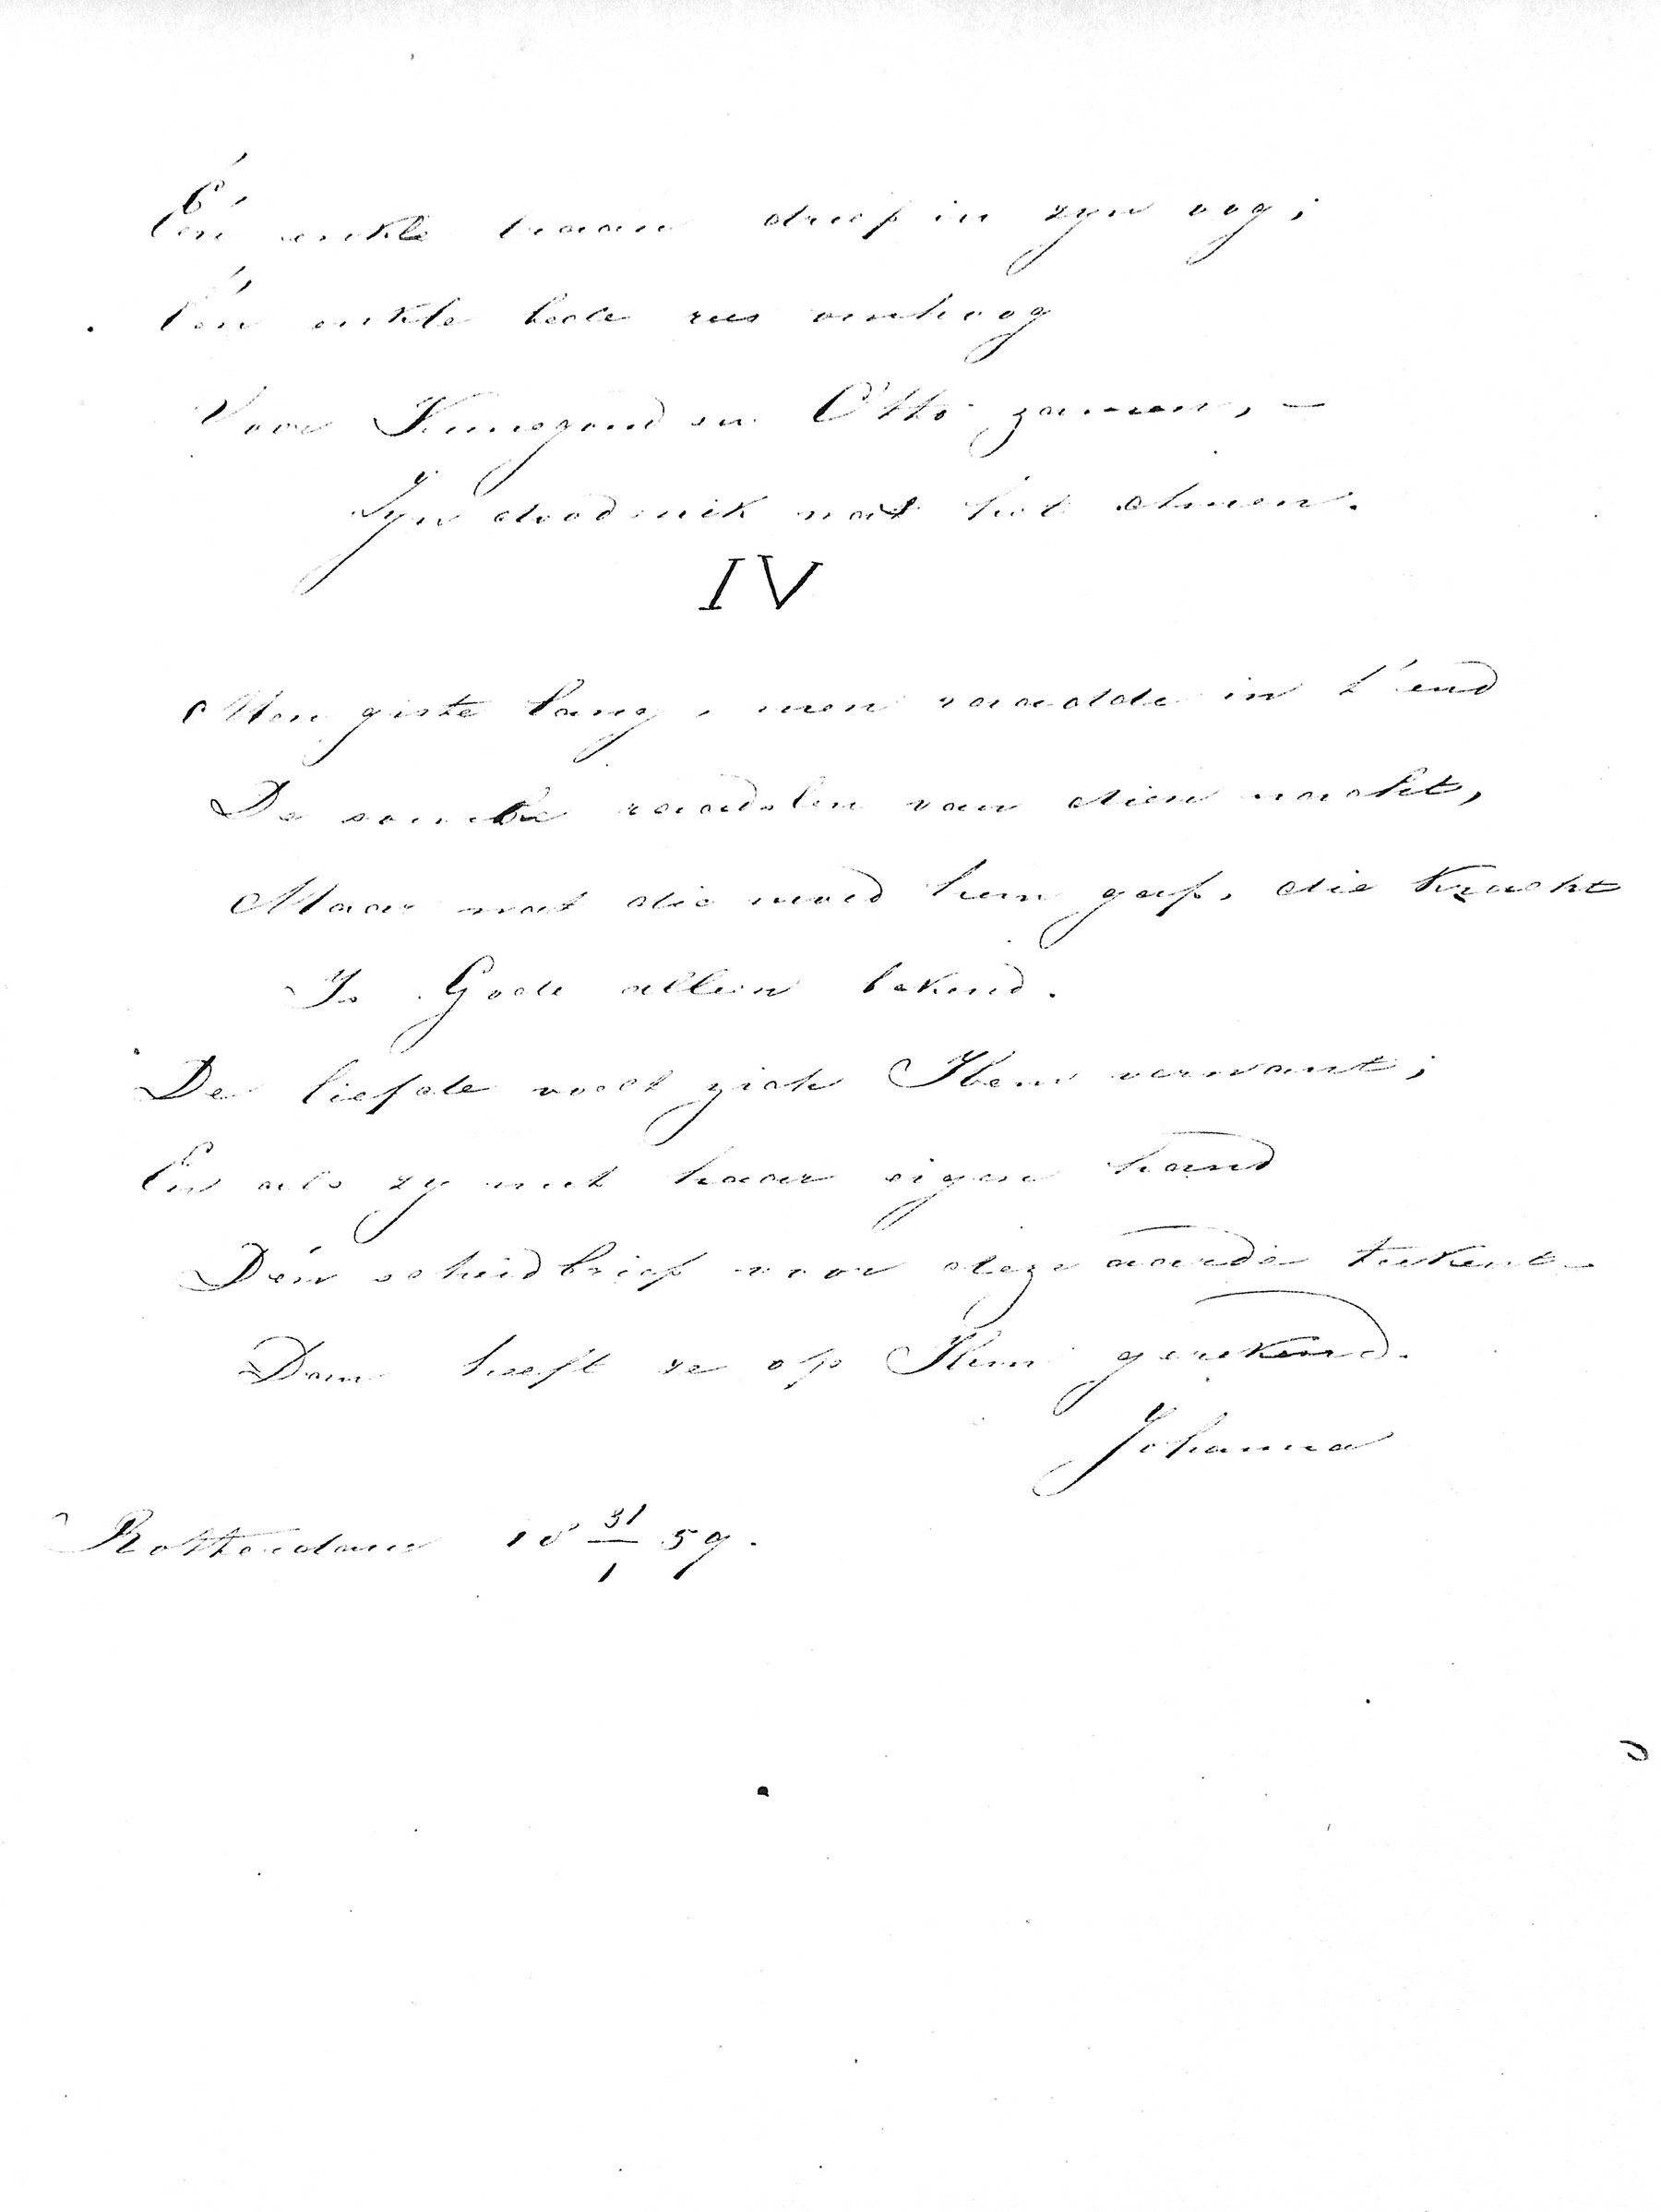 Één enkle traan dreef in zyn oog;
Één enkle bede rees omhoog
Voor Kunegond en Otto zamen, –
Zyn doodsnik was het Amen.
IV
Men giste lang, men raadde in 't end
De sombre raadslen van dien nacht,
Maar wat die moed hun gaf, die kracht
Is Gode alleen bekend.
De liefde voelt zich Hem verwant;
En als zy met haar eigen hand
Dén scheidbrief voor deze aarde teekent –
Dan heeft ze op Hem gerekend.
Johanna
Rotterdam 18 31/1 59.